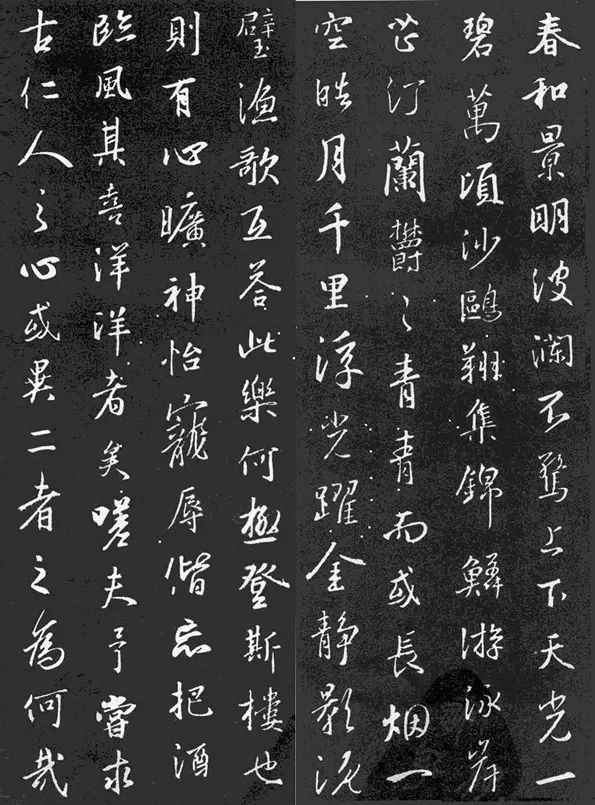 春和景明波瀾不驚上下天光一
碧萬頃沙鷗翔集錦鱗游泳岸
芷汀蘭鬱々青青而或長烟一
空皓月千里浮光躍金靜影沉
璧漁歌互答此樂何極登斯樓也
則有心曠神怡寵辱偕忘把酒
臨風其喜洋洋者矣嗟夫予嘗求
古仁人之心或異二者之為何哉